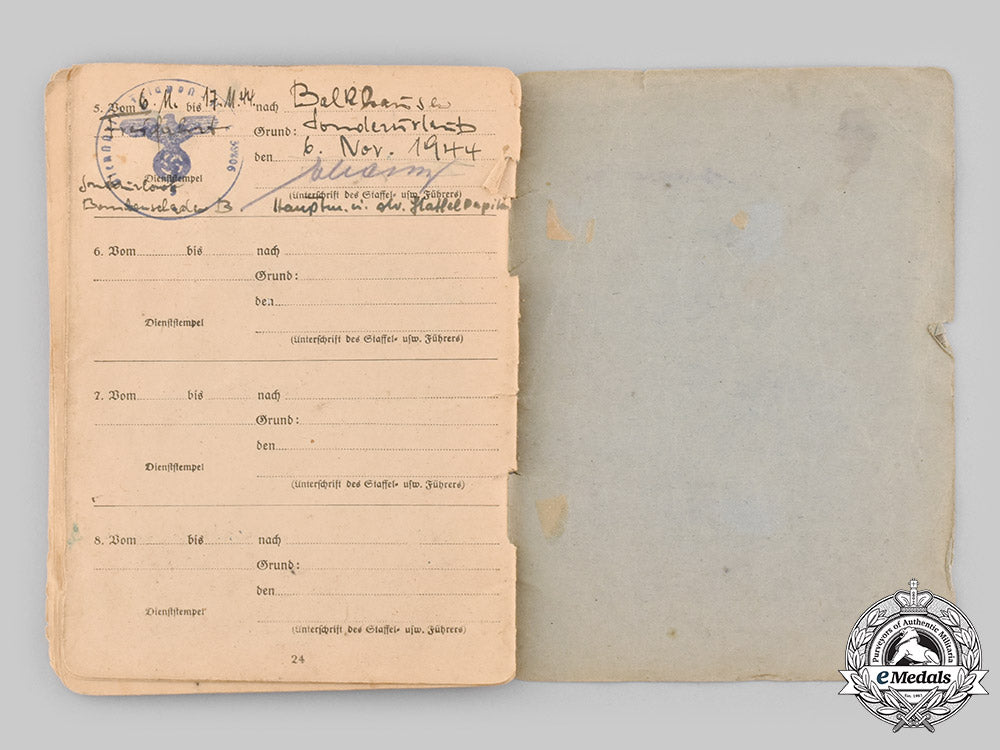 5. Vom 6. 11. bis 17. 11. 44. nach
Grund: Sonderurlaub
den 6. Nov. 1944
Dienststempel
(Unterschrift des Staffel- usw. Führers)
Bombenschaden B
Hauptm. u. Staffelkapitän
39406
6. Vom bis nach
Grund:
den
Dienststempel
(Unterschrift des Staffel- usw. Führers)
7. Vom bis nach
Grund:
den
Dienststempel
(Unterschrift des Staffel- usw. Führers)
8. Vom bis nach
Grund:
den
Dienststempel
(Unterschrift des Staffel- usw. Führers)
24
Purveyors of Authentic Militaria
eMedals